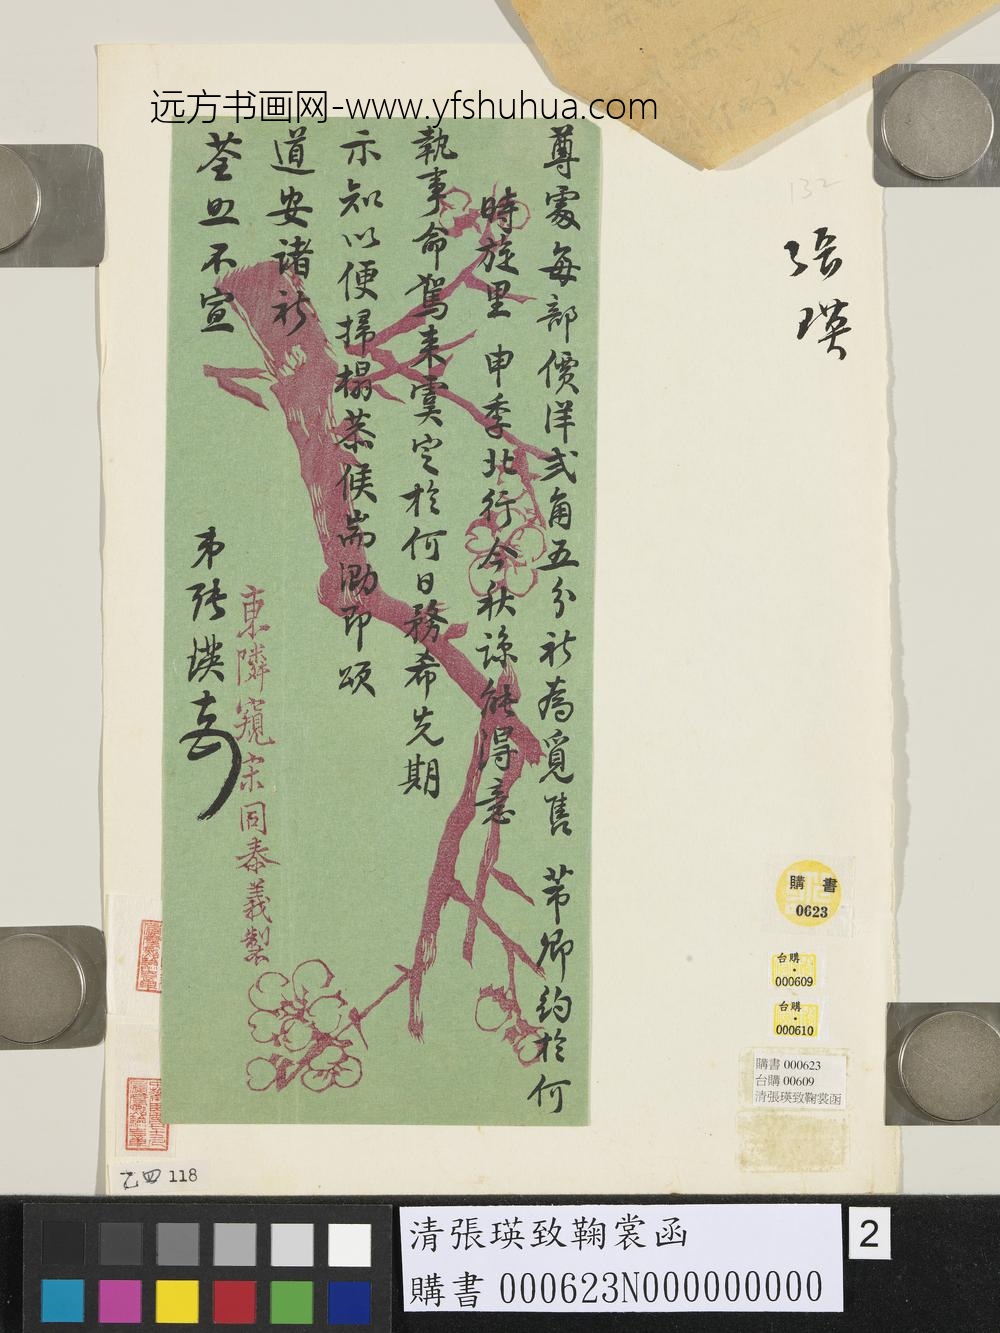 远方书画网-www.yfshuhua.com
尊處每部價洋弍角五分祈為覓售 芾卿約於何
時旋里 申季北行今秋諒能得意
執事命駕來虞定於何日務希先期
示知以便掃榻恭候耑泐即頌
道安諸祈
荃照不宣
弟張瑛
東隣窺宋同泰義製
132
張瑛
購書
0623
台購
000609
台購
000610
購書 000623
台購 00609
清張瑛致鞠裳函
乙四 118
清張瑛致鞠裳函
購書 000623N000000000
2